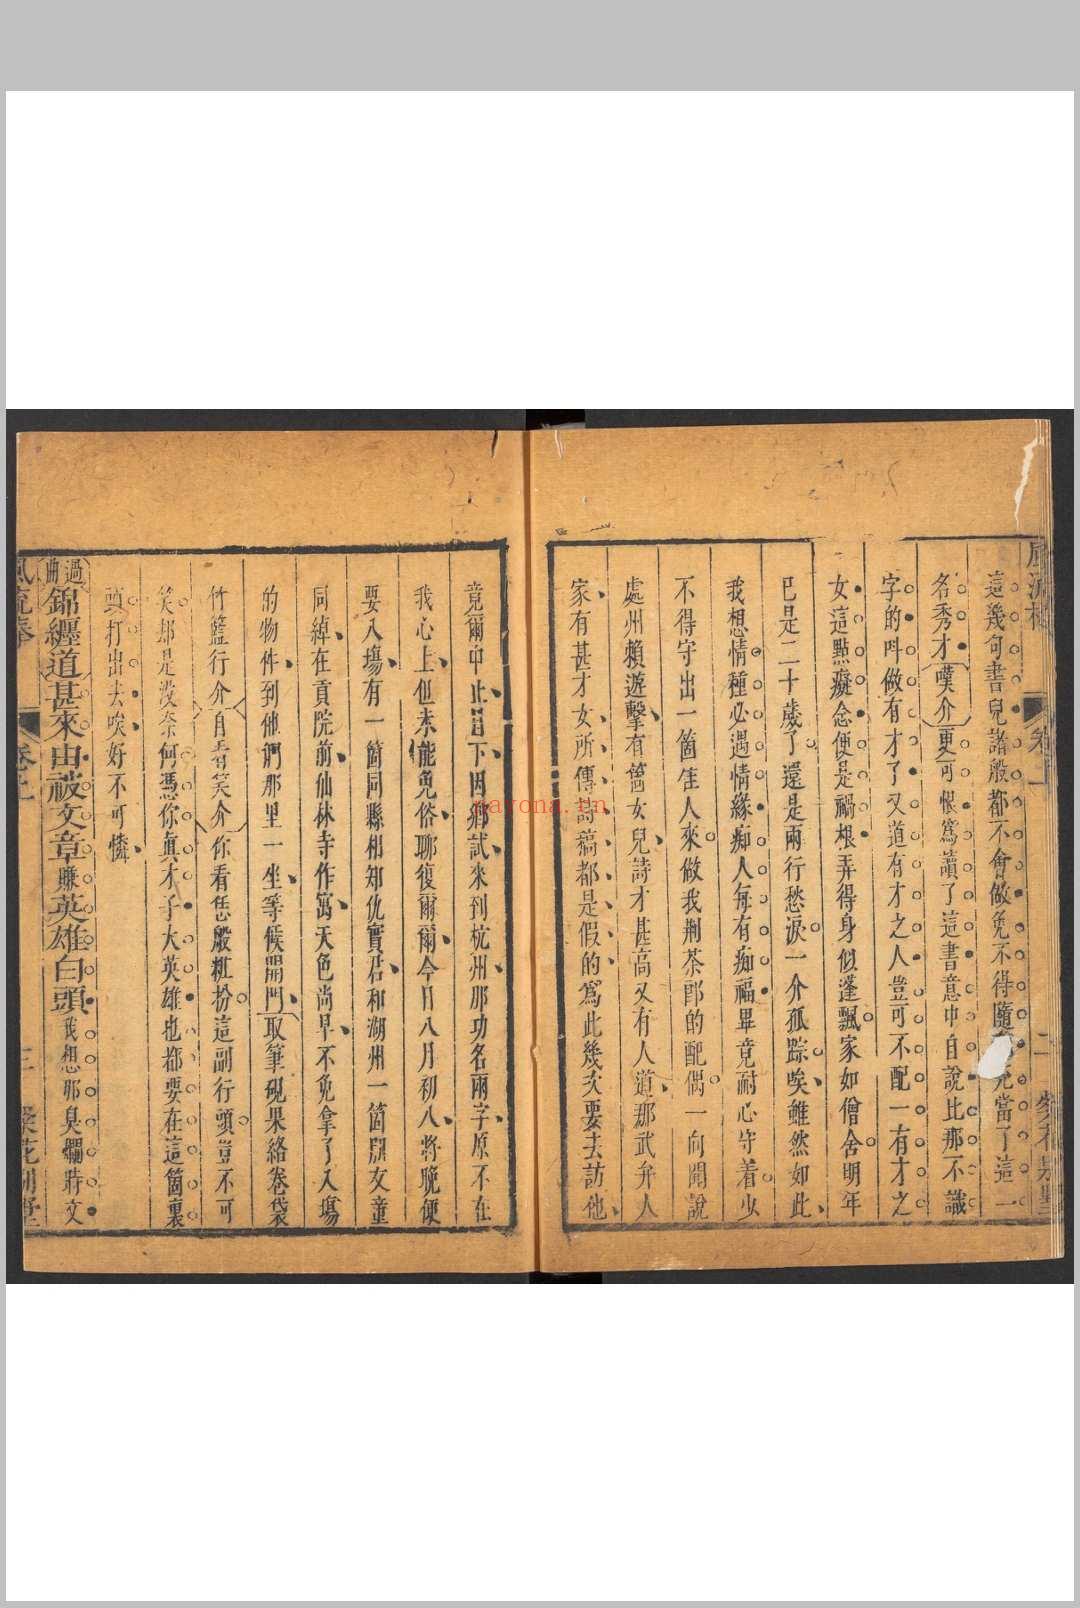 這幾句書兒諸般都不會做免不得隨死當了這一
名秀才嘆介更可恨爲讀了這書意中自說比那不識
字的呌做有才了又道有才之人豈可不配一有才之
女這點癡念便是禍根弄得身似蓬飄家如僧舍明年
巳是二十歲了還是兩行愁淚一介孤踪唉雖然如此
我想情種必遇情緣痴人每有痴福畢竟耐心守着少
不得守出一箇佳人來做我荆茶郎的配偶一向聞說
處州賴遊擊有箇女兒詩才甚高又有人道那武弁人
家有甚才女所傳詩稿都是假的爲此幾次要去訪他
竟爾中止目下因鄉試來到杭州那功名兩字原不在
我心上但未能免俗聊復爾爾今日八月初八將晚便
要入塲有一箇同縣相知仇實君和湖州一箇顧友童
同綽在貢院前仙林寺作寓天色尚早不免拿了入塲
的物件到他們那里一坐等候開門取筆硯果絡卷袋
竹籃行介自看笑介你看恁般粧扮這副行頭豈不可
笑却是没奈何憑你真才子大英雄也都要在這箇裏
頭打出去唉好不可憐
過曲錦纏道甚來由被文章賺英雄白頭我想那臭爛時文
卷上
三